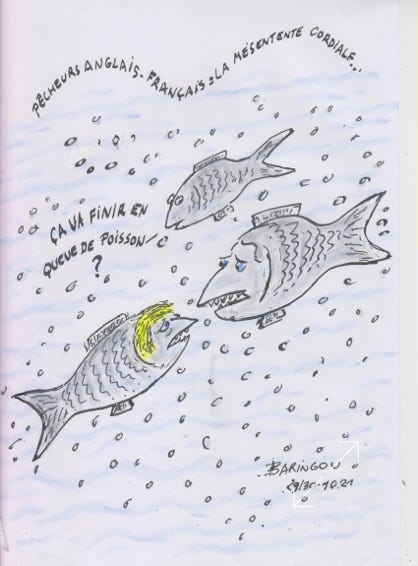 PÊCHEURS ANGLAIS-FRANÇAIS: LA MÉSENTENTE CORDIALE...
ÇA VA FINIR EN
QUEUE DE POISSON!
?
BARINGOU
29/30-10.21